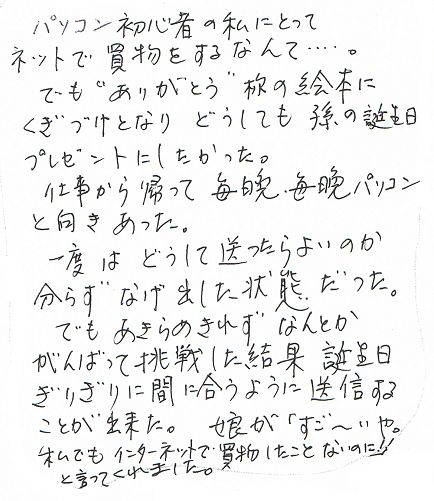 パソコン初心者の私にとって
ネットで買物をするなんて‥‥。
でも"ありがとう"称の絵本に
くぎづけとなり どうしても 孫の誕生日
プレゼントにしたかった。
仕事から帰って 毎晩、毎晩パソコン
と向きあった。
一度は どうして送ったらよいのか
分らず なげ出した状態だった。
でもあきらめきれず なんとか
がんばって挑戦した結果 誕生日
ぎりぎりに間に合うように送信する
ことが出来た。 娘が「すご〜いや。
私でもインターネットで買物したことないのに!!
と言ってくれました。